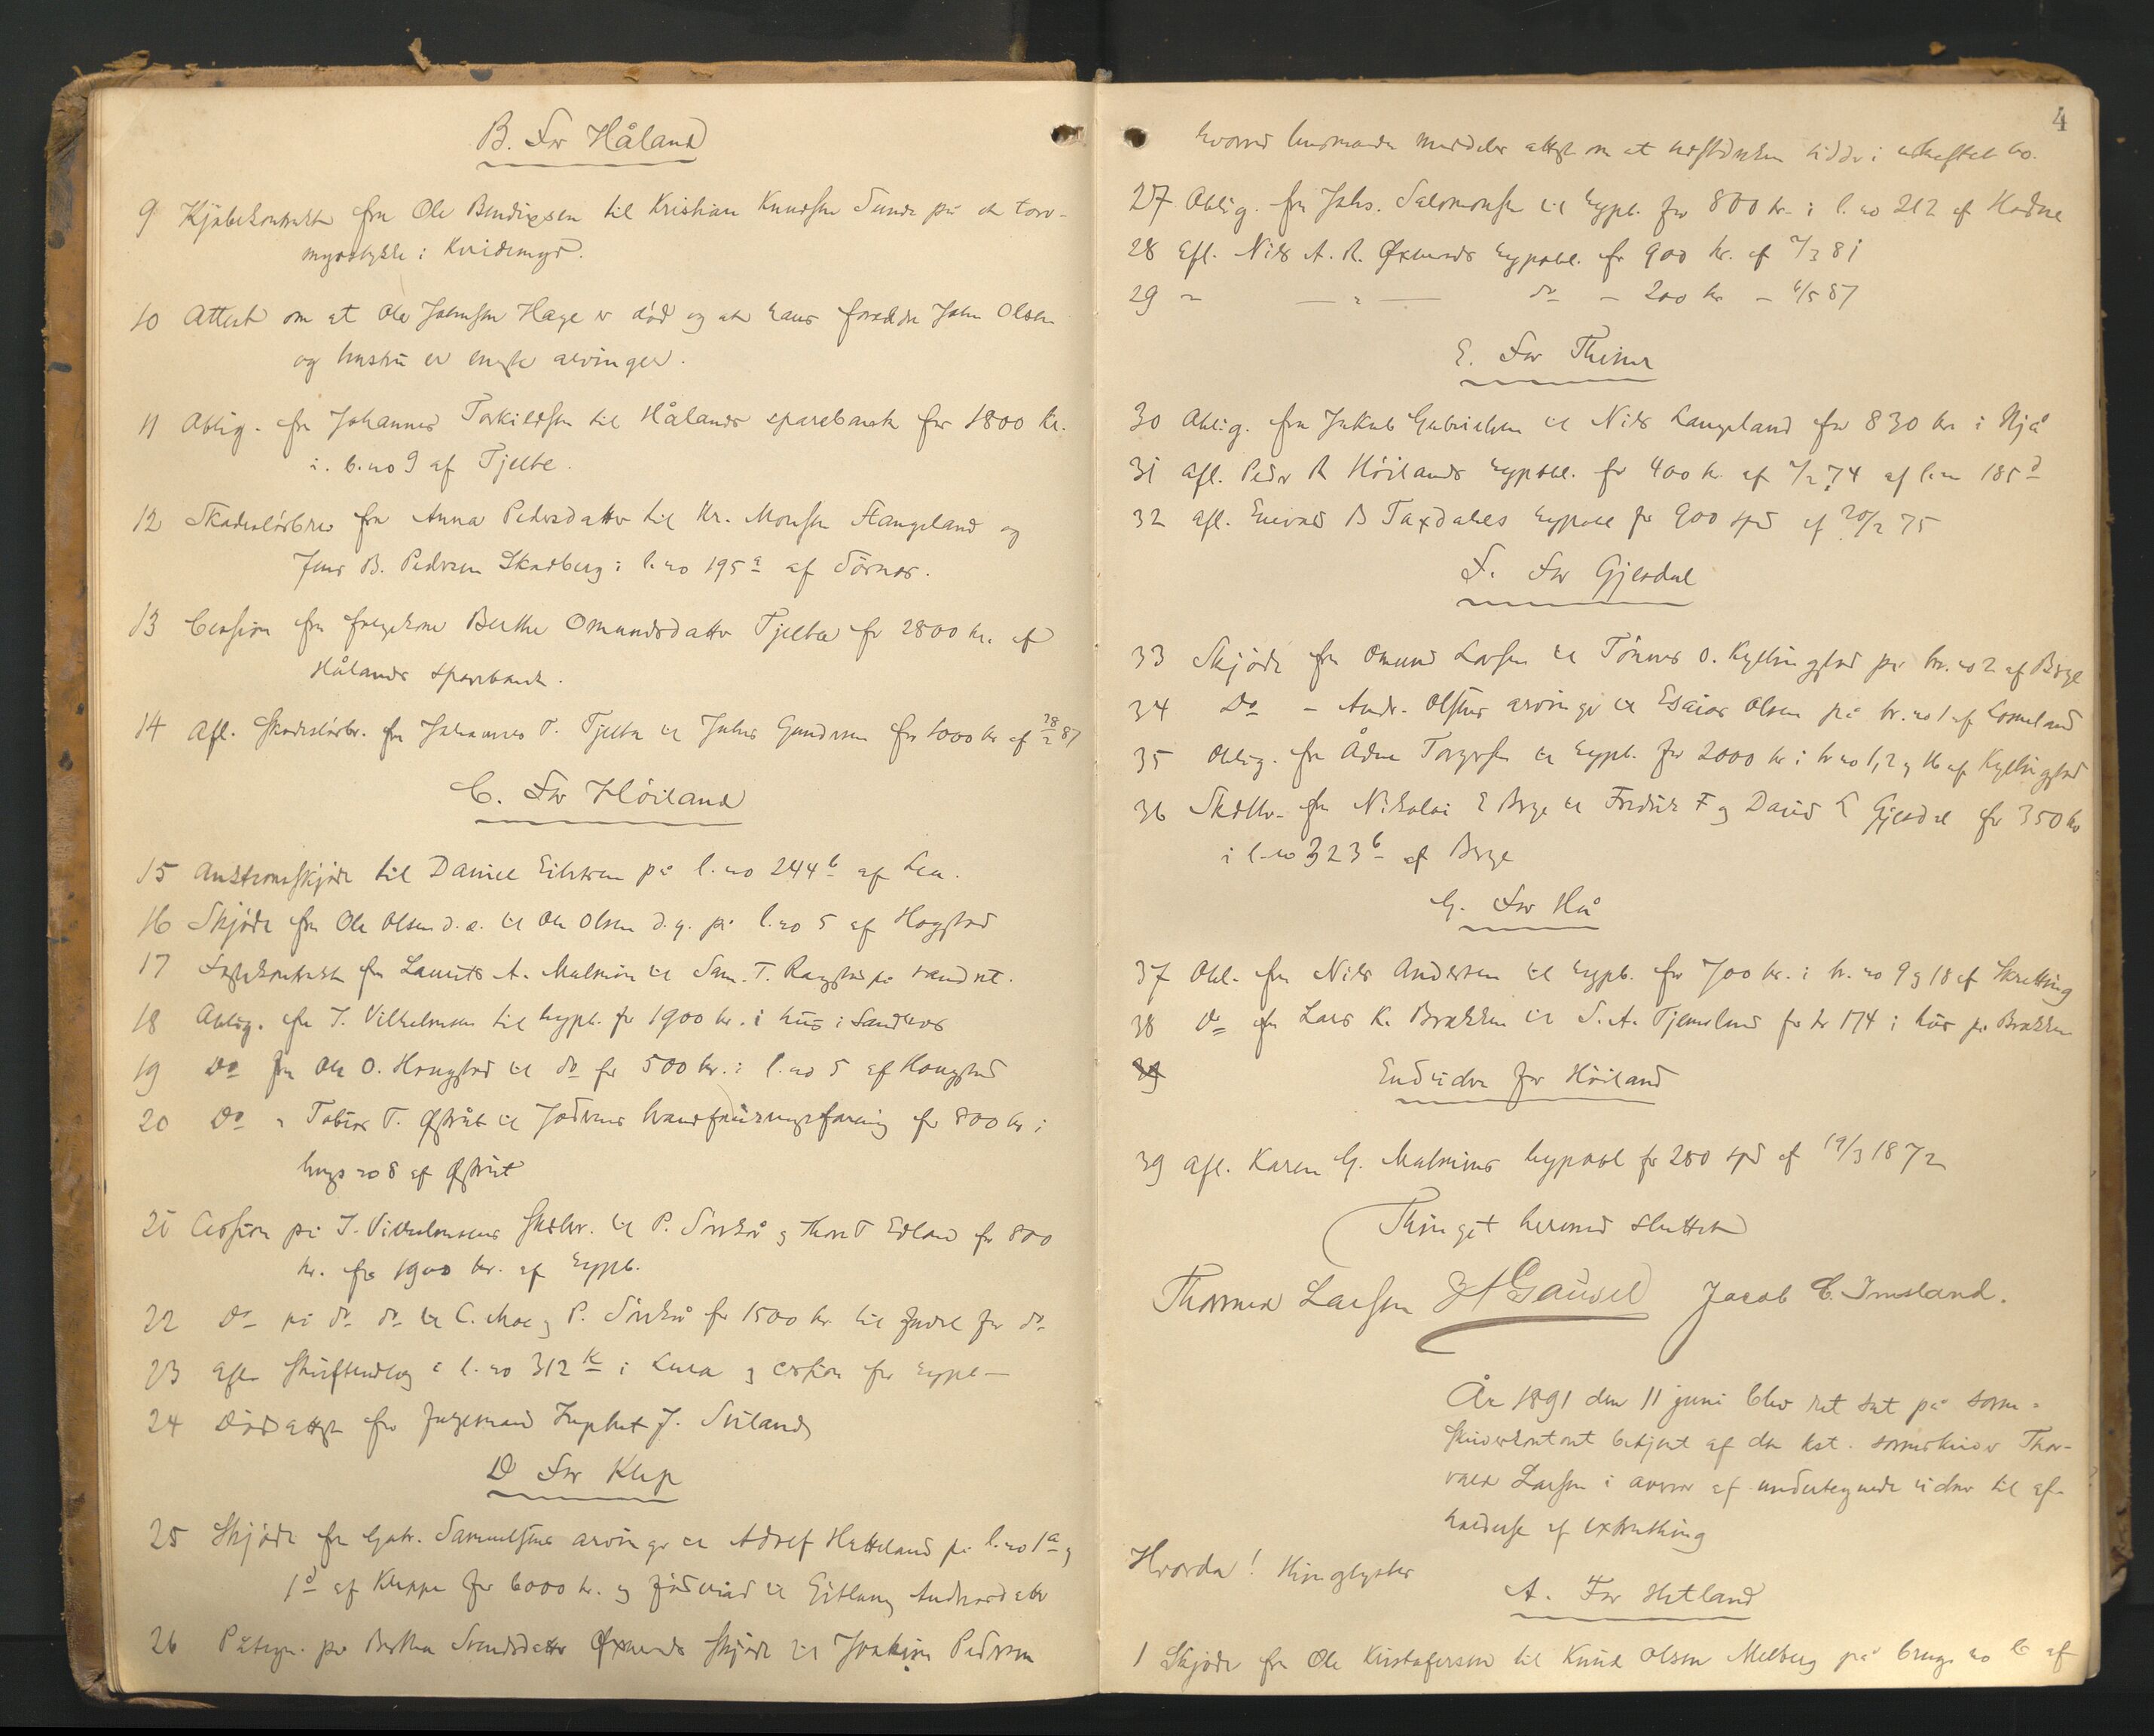 B. For Håland
9 Kjøbekontrakt fra Ole Bendixsen til Kristian Knudsen Sunde på et torv-
myrstykke i Kvidemyr.
10 Attest om at Ole Johnsen Hage er død og at hans forældre John Olsen
og hustru er eneste arvinger.
11 Oblig. fra Johannes Torkildsen til Hålands sparebank for 1800 kr.
i b. no 9 af Tjelte.
12 Skadesløsbrev fra Anna Pedersdatter til Kr. Monsen Stangeland og
Jens B. Pedersen Skadberg i l. no 195 a af Sørnes.
13 Cession fra Berthe Omundsdatter Tjelta for 2800 kr. af
Hålands sparebank.
14 Afl. skadesløsbr. fra Johannes T. Tjelta til Gundersen for 1000 kr af 28/2 87
C. For Höiland
15 Auktionsskjøde til Daniel Eilertsen på l. no 244 b af Lea.
16 Skjøde fra Ole Olsen d.æ. til Ole Olsen d.y. på l. no 5 af Hogstad
17 Fæstekontrakt fra Laurits A. Malmin til Sam. T. på Sandnes.
18 Oblig. fra J. Vilhelmsen til hypb. for 1900 kr. i hus i Sandnes
19 Do fra Ole O. Hougstad til do for 500 kr. i l. no 5 af Hougstad
20 Do " Tobias T. Østråt til Jæderens for 800 kr i
brugs no 8 af Østråt
21 Cession på J. Vilhelmsens til P. og Edland for 800
kr. fra 1900 kr. af hypb.
22 Do på do do til C. Moe og P. for 1500 kr. til for do
23 Afl. i l. no 312 k i Lura og cession fra hypb
24 Dødsattest for J.
D For Klep
25 Skjøde fra Gabr. Samuelsens arvinger til Adolf Hatteland på l. no 1 a og
1 d af Kleppe for 6000 kr. og til
26 Påtegn. på Bertha Svendsdatter Øxnevads skjøde til Joakim Pedersen
4
hvorved meddeler attest om at sidder i uskiftet bo.
27 Oblig. fra Johs. Salomonsen til hypb. for 800 kr. i l. no 212 af Hodne
28 Afl. Nils A. R. Øxnevads hypobl. for 900 kr. af 7/3 81
29 " — " — do - 200 kr - 6/5 87
E. For Thime
30 Oblig. fra Jakob Gabrielsen til Nils Langeland for 830 kr i Njå
31 Afl. Peder R Höilands hypobl. for 400 kr. af 74 af l. no 185 d
32 Afl. B Taxdales hypobl for 900 spd af 20/2 75
F. For Gjesdal
33 Skjøde fra Omund Larsen til Tönnes O. Kyllingstad på br. no 2 af Berge
34 Do - Andr. Olsens arvinger til Esaias Olsen på br. no 1 af
35 Oblig. fra Ådne Torgersen til hypb. for 2000 kr i br no 1, 2 og 16 af Kyllingstad
36 Skdlbr. fra Nikolai E Berge til Fredrik F og David Gjesdal for 350 kr
i l. no 323 b af Berge
G. For Hå
37 Obl. fra Nils Andersen til hypb. for 700 kr. i br. no 9 og 18 af Skretting
38 Do fra Lars K. Brækken til S. A. Tjemsland for kr 174 i hus på Brækken
39
Endvidere for Höiland
39 Afl. Karen G. Malmins hypobl for 280 spd af 19/3 1872
Thinget hermed sluttet
Thorvald Larssen Gausel Jacob C. Imsland.
År 1891 den 11 juni blev ret sat på soren-
skriverkontoret betjent af den kst. sorenskriver Thor-
vald Larssen i overvær af undertegnede vidner til af-
holdelse af extrathing
Hvorda! thinglystes
A. For Hetland
1 Skjøde fra Ole Kristofersen til Knud Olsen Melberg på brugs no af